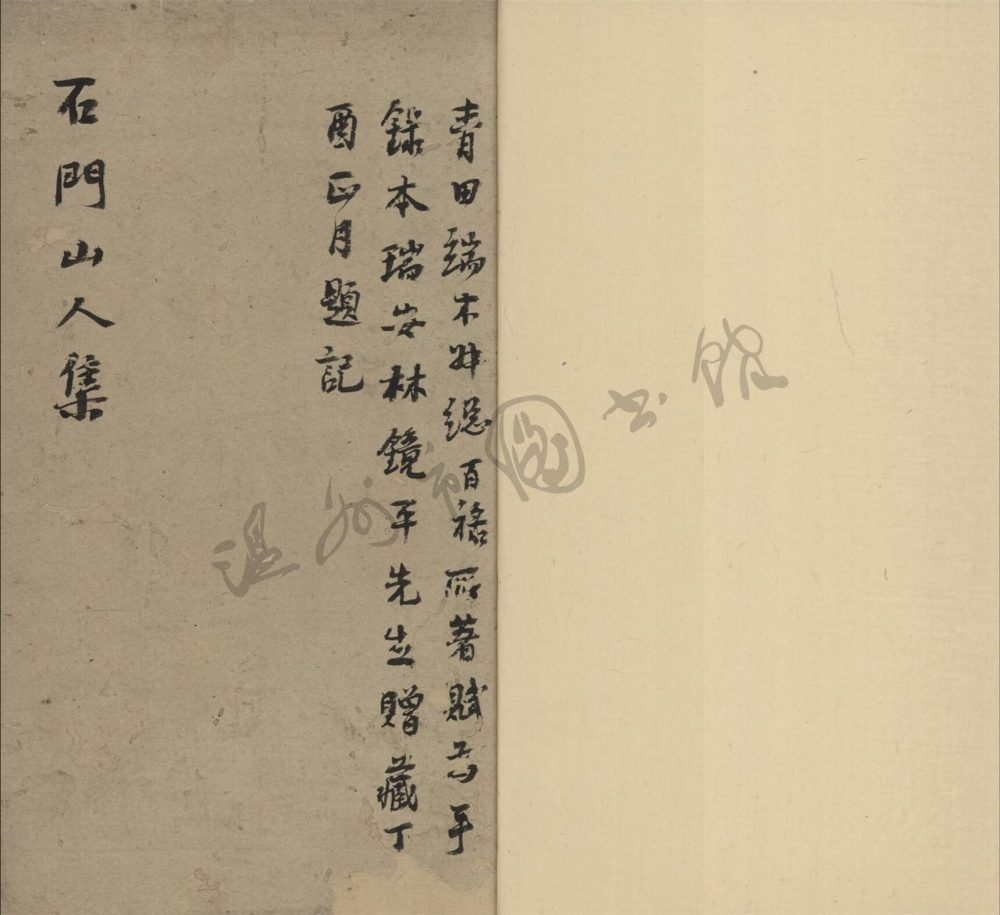 青田端木叔總百祿所著賦手
錄本瑞安林鏡平先生贈藏丁
酉正月題記
石門山人集
温州市圖书馆